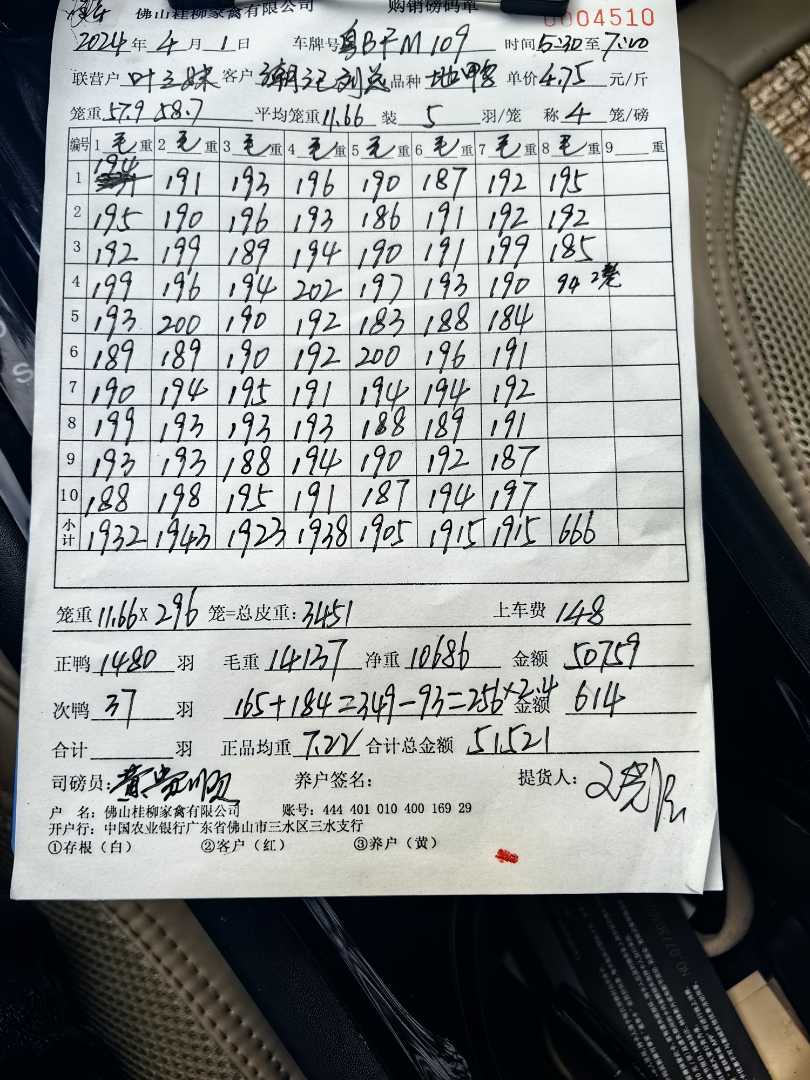 佛山桂柳家禽有限公司 购销磅码单
0004510
2024年4月1日 车牌号 粤BFM109 时间5:30至7:00
联营户 叶三妹 客户 潮记刘总 品种 地甲 单价4.75元/斤
笼重57.9 58.7 平均笼重11.66 装5羽/笼 称4笼/磅
编号 1毛重 2毛重 3毛重 4毛重 5毛重 6毛重 7毛重 8毛重 9重
1 194 191 193 196 190 187 192 195
2 195 190 196 193 186 191 192 192
3 192 199 189 194 190 191 199 185
4 199 196 194 202 197 193 190 94 2笼
5 193 200 190 192 183 188 184
6 189 189 190 192 200 196 191
7 190 194 195 191 194 194 192
8 199 193 193 193 188 189 191
9 193 193 188 194 190 192 187
10 188 198 195 191 187 194 197
小计 1932 1943 1923 1938 1905 1915 1915 666
笼重11.66×296笼=总皮重:3451 上车费148
正鸭1480羽 毛重14137 净重10686 金额50759
次鸭37羽 165+184=349-93=256×2.4 金额614
合计 羽 正品均重7.22 合计总金额51521
司磅员: 养户签名: 提货人:
户 名:佛山桂柳家禽有限公司 账号:444 401 010 400 169 29
开户行:中国农业银行广东省佛山市三水区三水支行
①存根(白) ②客户(红) ③养户(黄)